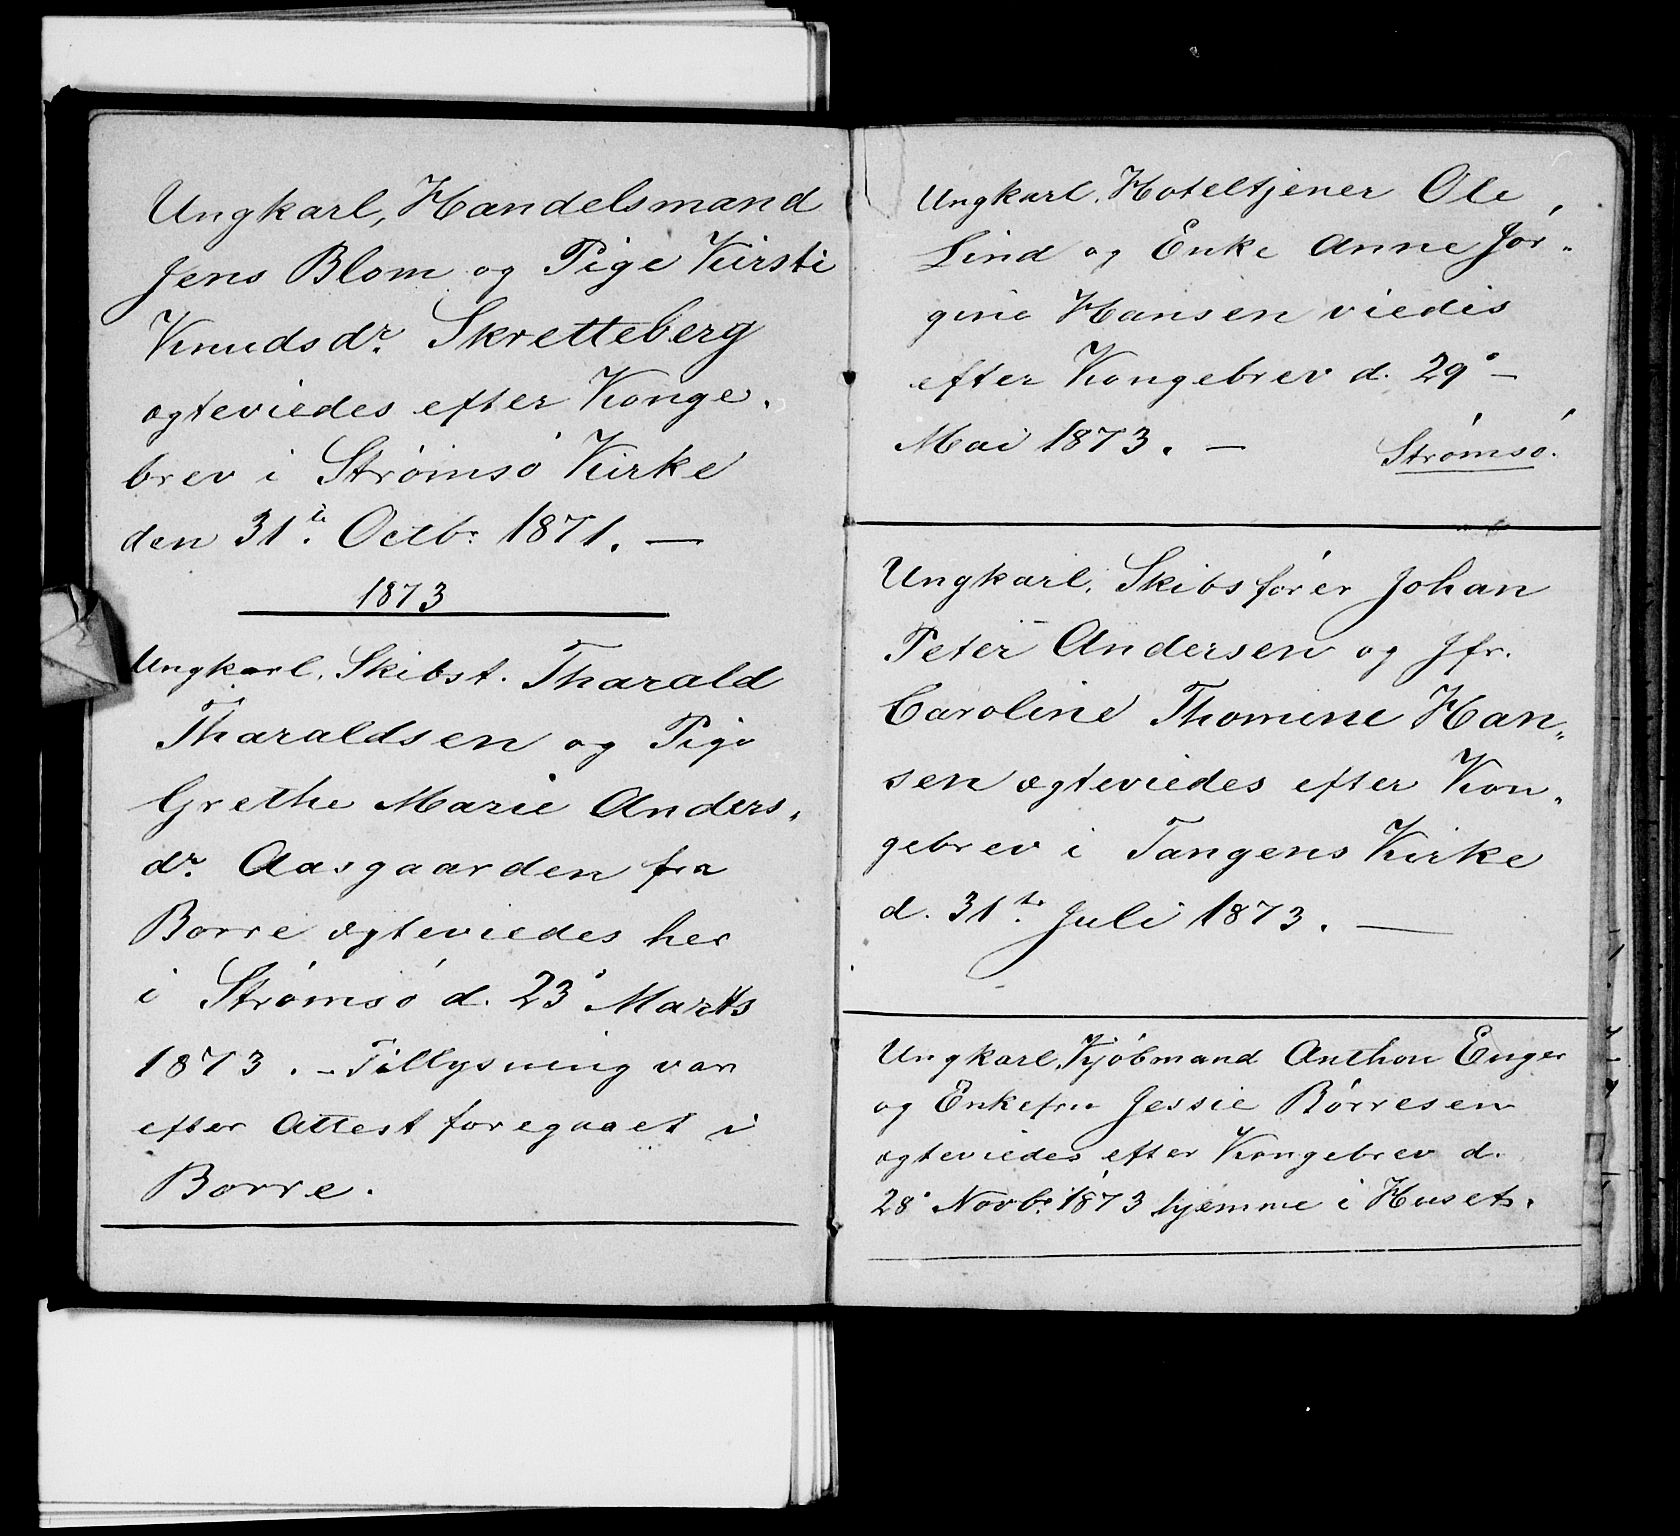 Ungkarl, Handelsmand
Jens Blom og Pige Kirsti
Knudsdr. Skretteberg
ægteviedes efter Konge-
brev i Strømsø Kirke
den 31te Octbr 1871. —
1873
Ungkarl. Skibst. Tharald
Tharaldsen og Pige
Grethe Marie Anders-
dr. Aasgaarden fra
Borre ægteviedes her
i Strømsø d. 23° Marts
1873. – Tillysning var
efter Attest foregaaet i
Borre.
Ungkarl. Hoteltjener Ole
Lind og Enke Anne Jør-
gine Hansen viedes
efter Kongebrev d. 29° –
Mai 1873. — Strømsø.
Ungkarl. Skibsfører Johan
Peter Andersen og Jfr.
Caroline Thomine Han-
sen ægteviedes efter Kon-
gebrev i Tangens Kirke
d. 31te Juli 1873. —
Ungkarl, Kjøbmand Anthon Enger
og Enkefru Jessie Børresen
ægteviedes efter Kongebrev d.
28° Novbr 1873 hjemme i Huset.